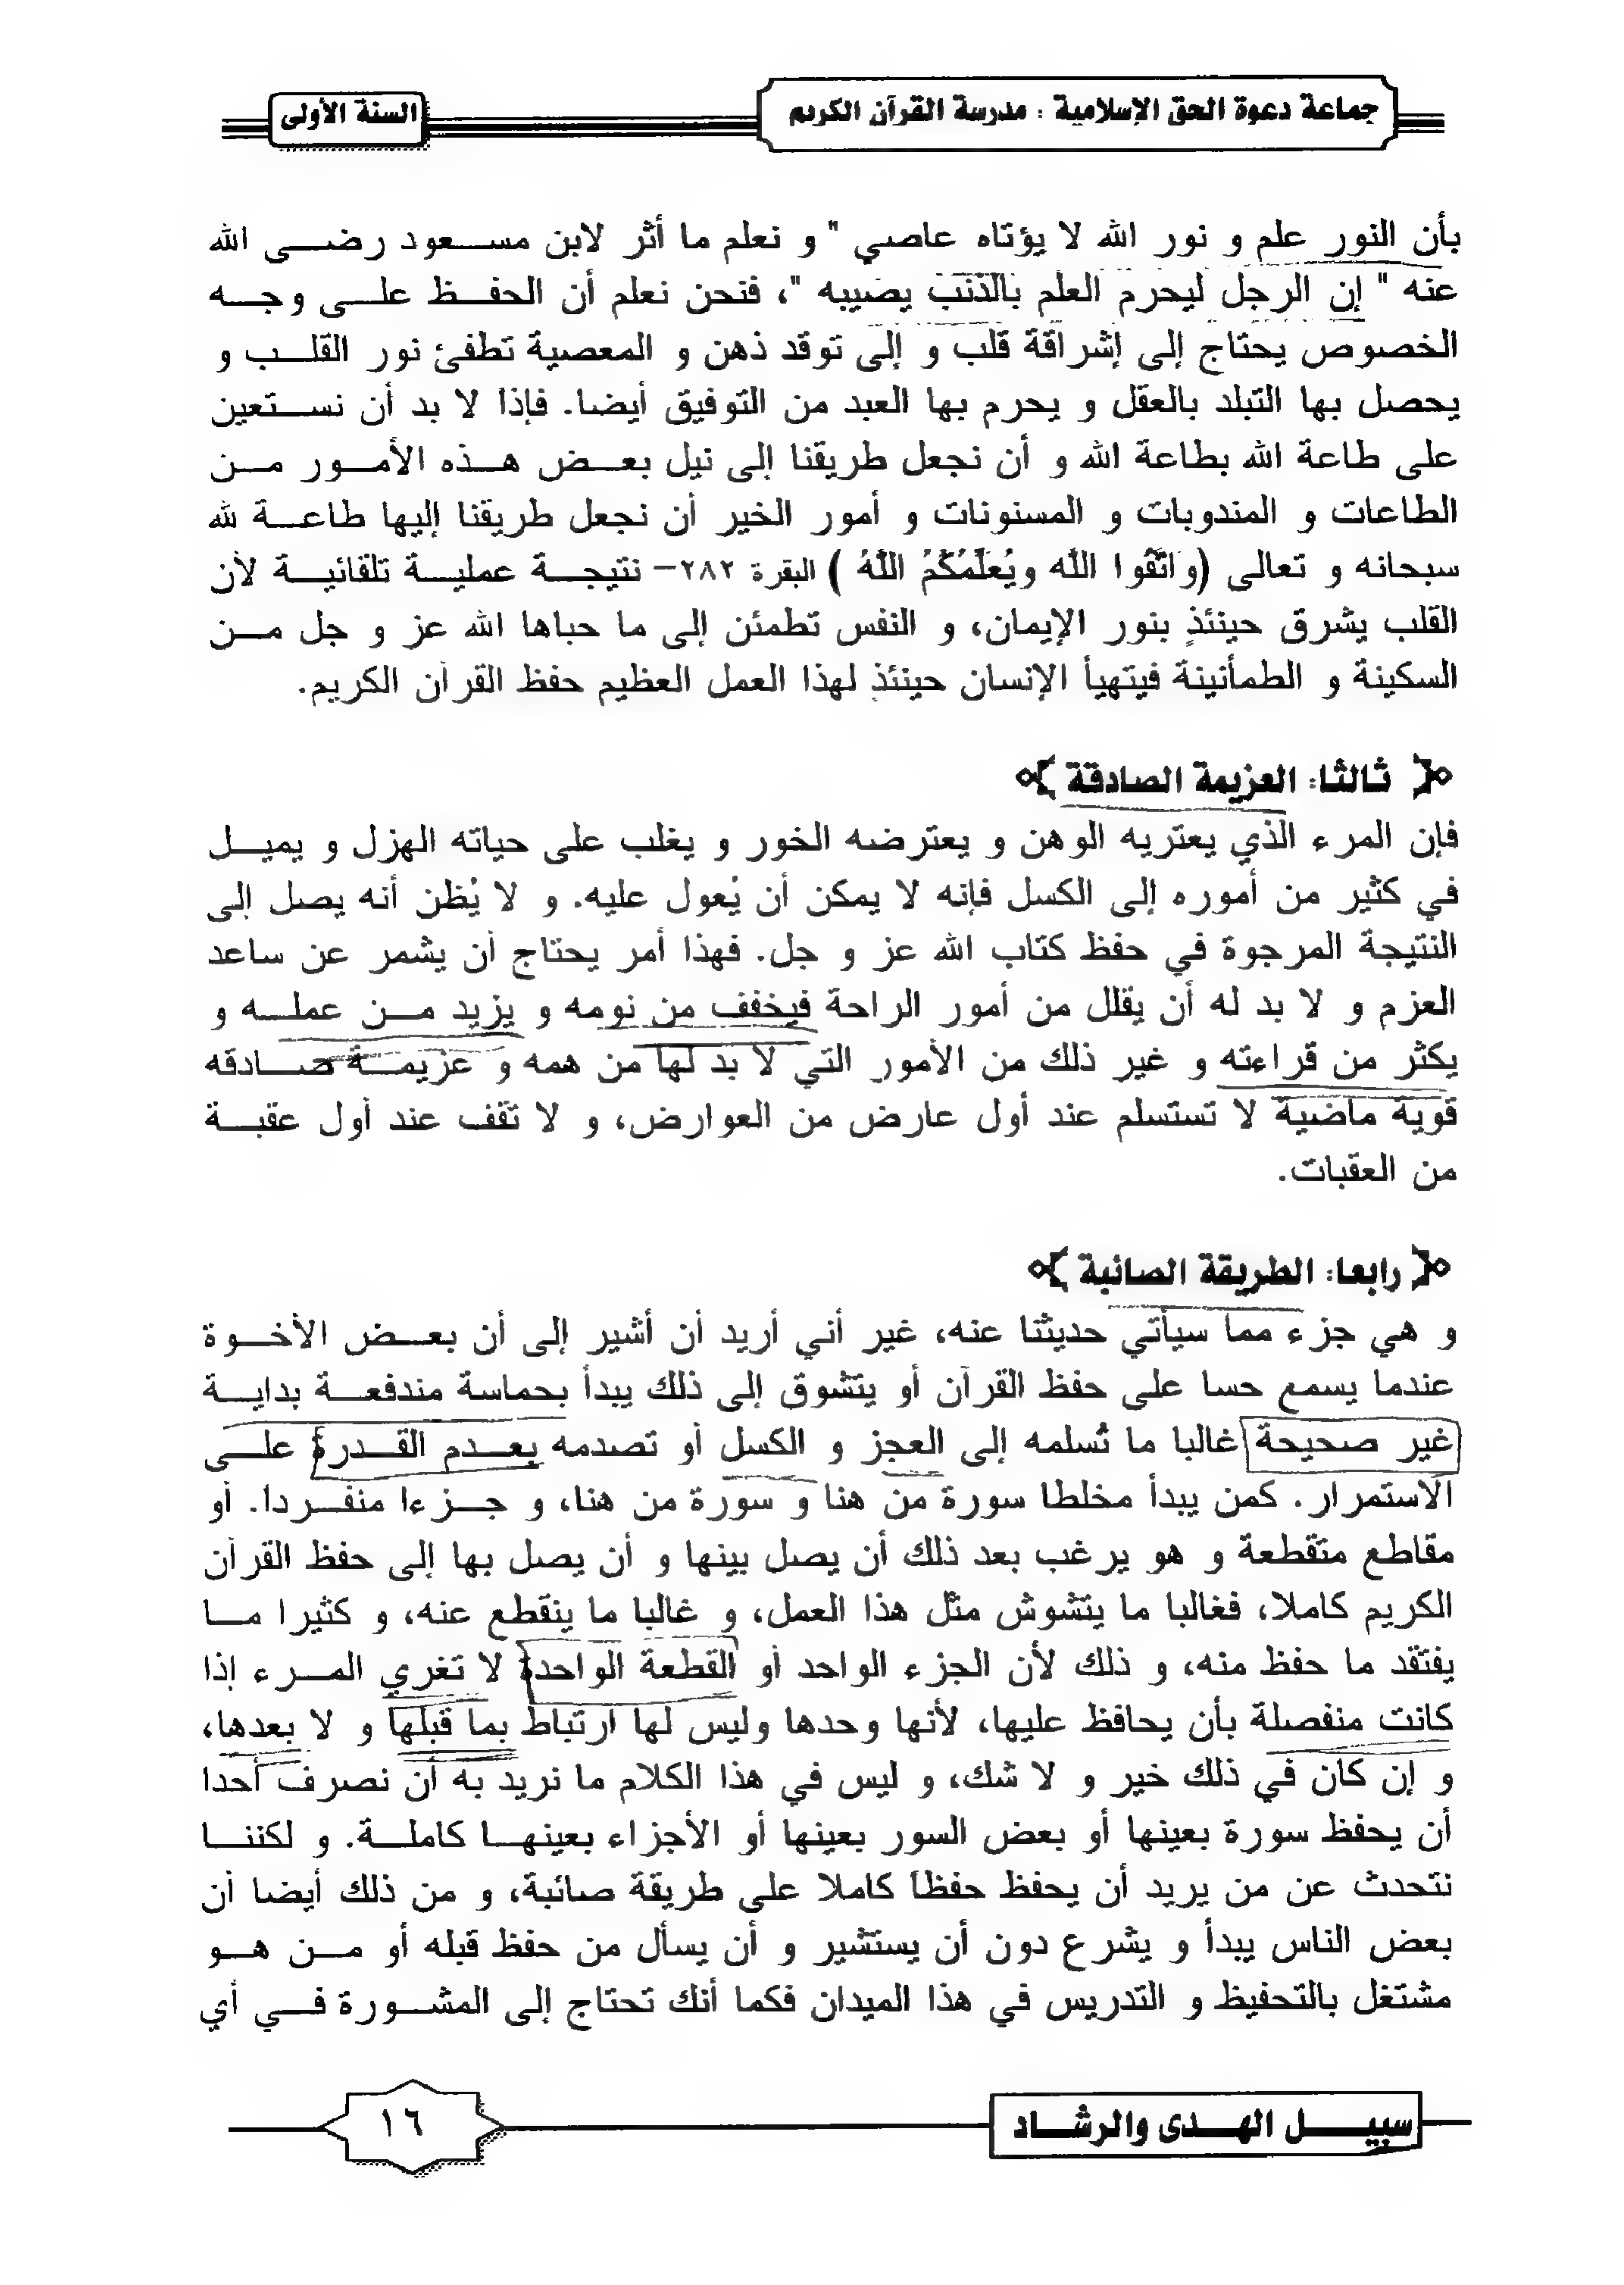 جماعة دعوة الحق الإسلامية : مدرسة القرآن الكريم
السنة الأولى
بأن النور علم و نور الله لا يؤتاه عاصي " و نعلم ما أثر لابن مسعود رضى الله
عنه " إن الرجل ليحرم العلم بالذنب يصيبه "، فنحن نعلم أن الحفظ على وجه
الخصوص يحتاج إلى إشراقة قلب و إلى توقد ذهن و المعصية تطفئ نور القلب و
يحصل بها التبلد بالعقل و يحرم بها العبد من التوفيق أيضا. فإذا لا بد أن نستعين
على طاعة الله بطاعة الله و أن نجعل طريقنا إلى نيل بعض هذه الأمور من
الطاعات و المندوبات و المسنونات و أمور الخير أن نجعل طريقنا إليها طاعة لله
سبحانه و تعالى (وَاتَّقُوا اللَّه ويُعَلِّمُكُمُ اللَّهُ ) البقرة ٢٨٢– نتيجة عملية تلقائية لأن
القلب يشرق حينئذٍ بنور الإيمان، و النفس تطمئن إلى ما حباها الله عز و جل من
السكينة و الطمأنينة فيتهيأ الإنسان حينئذٍ لهذا العمل العظيم حفظ القرآن الكريم.
ثالثا: العزيمة الصادقة
فإن المرء الذي يعتريه الوهن و يعترضه الخور و يغلب على حياته الهزل و يميل
في كثير من أموره إلى الكسل فإنه لا يمكن أن يُعول عليه. و لا يُظن أنه يصل إلى
النتيجة المرجوة في حفظ كتاب الله عز و جل. فهذا أمر يحتاج أن يشمر عن ساعد
العزم و لا بد له أن يقلل من أمور الراحة فيخفف من نومه و يزيد من عمله و
يكثر من قراءته و غير ذلك من الأمور التي لا بد لها من همه و عزيمة صادقه
قوية ماضية لا تستسلم عند أول عارض من العوارض، و لا تقف عند أول عقبة
من العقبات.
رابعا: الطريقة الصائبة
و هي جزء مما سيأتي حديثنا عنه، غير أني أريد أن أشير إلى أن بعض الأخوة
عندما يسمع حسا على حفظ القرآن أو يتشوق إلى ذلك يبدأ بحماسة مندفعة بداية
غير صحيحة غالبا ما تُسلمه إلى العجز و الكسل أو تصدمه بعدم القدرة على
الاستمرار. كمن يبدأ مخلطا سورة من هنا و سورة من هنا، و جزءا منفردا. أو
مقاطع متقطعة و هو يرغب بعد ذلك أن يصل بينها و أن يصل بها إلى حفظ القرآن
الكريم كاملا، فغالبا ما يتشوش مثل هذا العمل، و غالبا ما ينقطع عنه، و كثيرا ما
يفتقد ما حفظ منه، و ذلك لأن الجزء الواحد أو القطعة الواحدة لا تغري المرء إذا
كانت منفصلة بأن يحافظ عليها، لأنها وحدها وليس لها ارتباط بما قبلها و لا بعدها،
و إن كان في ذلك خير و لا شك، و ليس في هذا الكلام ما نريد به أن نصرف أحدا
أن يحفظ سورة بعينها أو بعض السور بعينها أو الأجزاء بعينها كاملة. و لكننا
نتحدث عن من يريد أن يحفظ حفظاً كاملا على طريقة صائبة، و من ذلك أيضا أن
بعض الناس يبدأ و يشرع دون أن يستشير و أن يسأل من حفظ قبله أو من هو
مشتغل بالتحفيظ و التدريس في هذا الميدان فكما أنك تحتاج إلى المشورة في أي
سبيل الهدى والرشاد
١٦